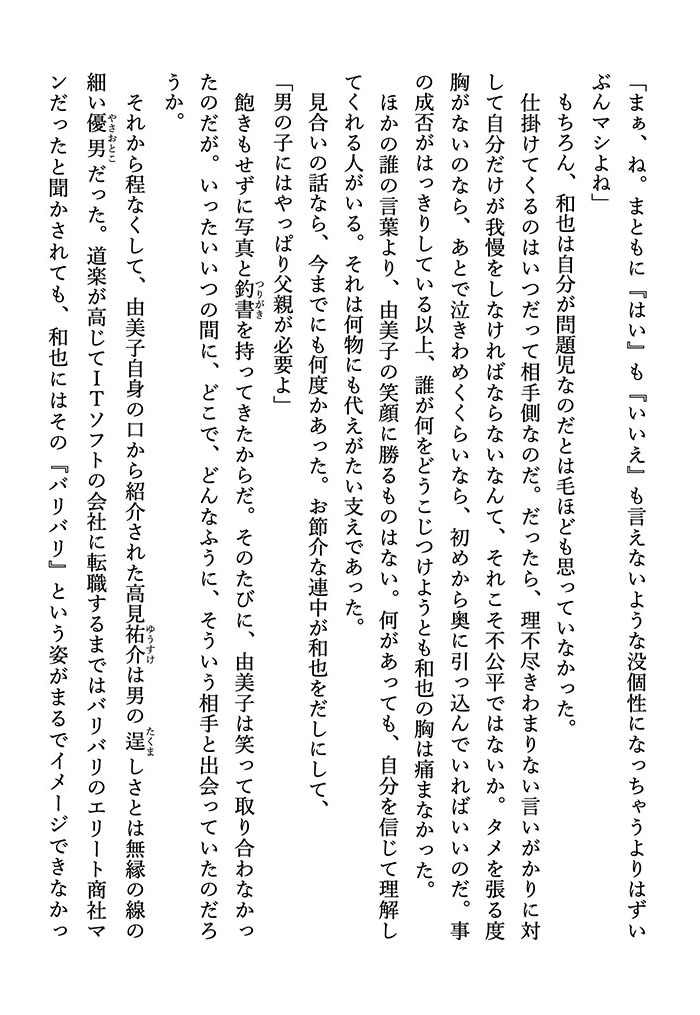 「まぁ、ね。まともに『はい』も『いいえ』も言えないような没個性になっちゃうよりはずい
ぶんマシよね」
もちろん、和也は自分が問題児なのだとは毛ほども思っていなかった。
仕掛けてくるのはいつだって相手側なのだ。だったら、理不尽きわまりない言いがかりに対
して自分だけが我慢をしなければならないなんて、それこそ不公平ではないか。タメを張る度
胸がないのなら、あとで泣きわめくくらいなら、初めから奥に引っ込んでいればいいのだ。事
の成否がはっきりしている以上、誰が何をどうこじつけようとも和也の胸は痛まなかった。
ほかの誰の言葉より、由美子の笑顔に勝るものはない。何があっても、自分を信じて理解し
てくれる人がいる。それは何物にも代えがたい支えであった。
見合いの話なら、今までにも何度かあった。お節介な連中が和也をだしにして、
「男の子にはやっぱり父親が必要よ」
飽きもせずに写真と釣書つりがきを持ってきたからだ。そのたびに、由美子は笑って取り合わなかっ
たのだが。いったいいつの間に、どこで、どんなふうに、そういう相手と出会っていたのだろ
うか。
それから程なくして、由美子自身の口から紹介された高見祐介ゆうすけは男の逞たくましさとは無縁の線の
細い優男やさおとこだった。道楽が高じてITソフトの会社に転職するまではバリバリのエリート商社マ
ンだったと聞かされても、和也にはその『バリバリ』という姿がまるでイメージできなかっ